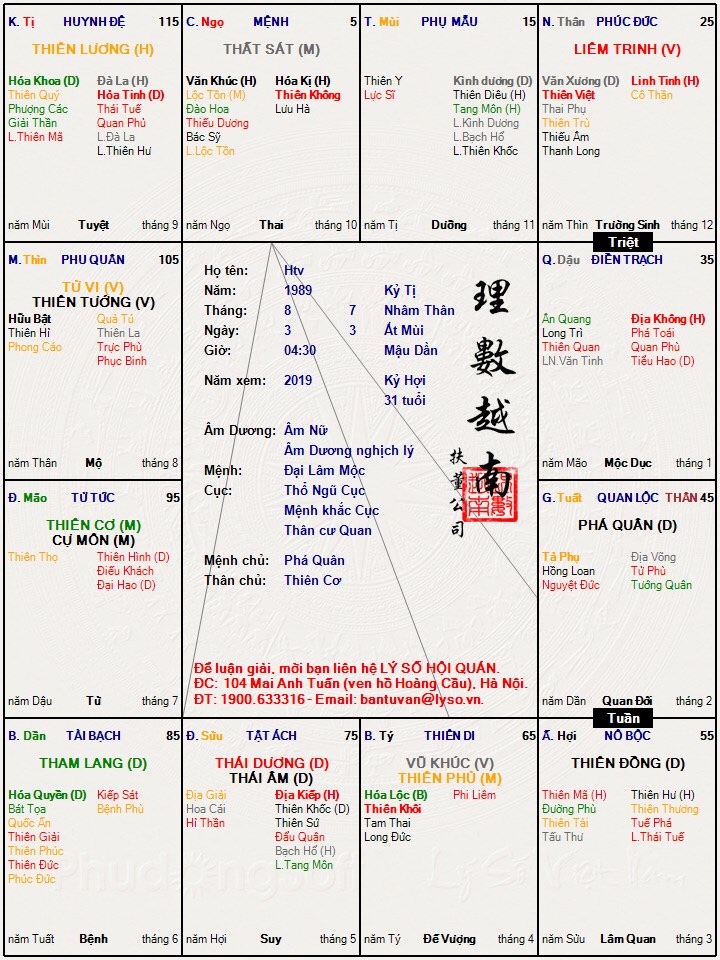 K. Tị HUYNH ĐỆ 115
THIÊN LƯƠNG (H)
Hóa Khoa (D) Đà La (H)
Thiên Quý Hỏa Tinh (D)
Phượng Các Thái Tuế
Giải Thần Quan Phủ
L.Thiên Mã L.Đà La
L.Thiên Hư
năm Mùi Tuyệt tháng 9
C. Ngọ MỆNH 5
THẤT SÁT (M)
Văn Khúc (H) Hóa Kị (H)
Lộc Tồn (M) Thiên Không
Đào Hoa Lưu Hà
Thiếu Dương
Bác Sỹ
L.Lộc Tồn
năm Ngọ Thai tháng 10
T. Mùi PHỤ MẪU 15
Thiên Y Kình dương (D)
Lực Sĩ Thiên Diêu (H)
Tang Môn (H)
L.Kình Dương
L.Bạch Hổ
L.Thiên Khốc
năm Tị Dưỡng tháng 11
N. Thân PHÚC ĐỨC 25
LIÊM TRINH (V)
Văn Xương (D) Linh Tinh (H)
Thiên Việt Cô Thần
Thai Phụ
Thiên Trù
Thiếu Âm
Thanh Long
năm Thìn Trường Sinh tháng 12
Triệt
M. Thìn PHU QUÂN 105
TỬ VI (V)
THIÊN TƯỚNG (V)
Hữu Bật Quả Tú
Thiên Hỉ Thiên La
Phong Cáo Trực Phù
Phục Binh
năm Thân Mộ tháng 8
Họ tên: Htv
Năm: 1989 Kỷ Tị
Tháng: 8 7 Nhâm Thân
Ngày: 3 3 Ất Mùi
Giờ: 04:30 Mậu Dần
Năm xem: 2019 Kỷ Hợi
31 tuổi
Âm Dương: Âm Nữ
Âm Dương nghịch lý
Mệnh: Đại Lâm Mộc
Cục: Thổ Ngũ Cục
Mệnh khắc Cục
Thân cư Quan
Mệnh chủ: Phá Quân
Thân chủ: Thiên Cơ
理數越南
扶董公司
Để luận giải, mời bạn liên hệ LÝ SỐ HỘI QUÁN.
ĐC: 104 Mai Anh Tuấn (ven hồ Hoàng Cầu), Hà Nội.
ĐT: 1900.633316 - Email: bantuvan@lyso.vn.
Q. Dậu ĐIỀN TRẠCH 35
Ân Quang Địa Không (H)
Long Trì Phá Toái
Thiên Quan Quan Phù
LN.Văn Tinh Tiểu Hao (D)
năm Mão Mộc Dục tháng 1
Đ. Mão TỬ TỨC 95
THIÊN CƠ (M)
CỰ MÔN (M)
Thiên Thọ Thiên Hình (D)
Điếu Khách
Đại Hao (D)
năm Dậu Tử tháng 7
G. Tuất QUAN LỘC THÂN 45
PHÁ QUÂN (D)
Tả Phụ Địa Võng
Hồng Loan Tử Phù
Nguyệt Đức Tướng Quân
năm Dần Quan Đới tháng 2
Tuần
B. Dần TÀI BẠCH 85
THAM LANG (D)
Hóa Quyền (D) Kiếp Sát
Bát Tọa Bệnh Phù
Quốc Ấn
Thiên Giải
Thiên Phúc
Thiên Đức
Phúc Đức
năm Tuất Bệnh tháng 6
Đ. Sửu TẬT ÁCH 75
THÁI DƯƠNG (D)
THÁI ÂM (D)
Địa Giải Địa Kiếp (H)
Hoa Cái Thiên Khốc (D)
Hỉ Thần Thiên Sứ
Đẩu Quân
Bạch Hổ (H)
L.Tang Môn
năm Hợi Suy tháng 5
B. Tý THIÊN DI 65
VŨ KHÚC (V)
THIÊN PHỦ (M)
Hóa Lộc (B) Phi Liêm
Thiên Khôi
Tam Thai
Long Đức
năm Tý Đế Vượng tháng 4
Ấ. Hợi NÔ BỘC 55
THIÊN ĐỒNG (D)
Thiên Mã (H) Thiên Hư (H)
Đường Phù Thiên Thương
Thiên Tài Tuế Phá
Tấu Thư L.Thái Tuế
năm Sửu Lâm Quan tháng 3